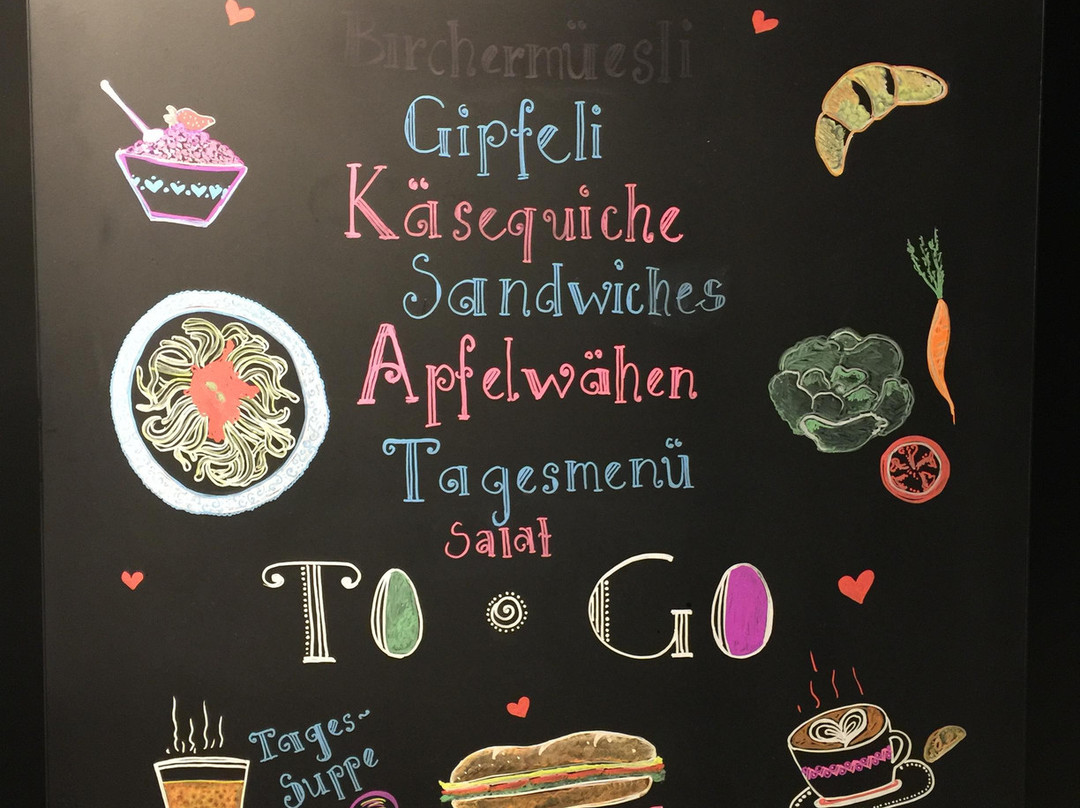 Birchermüesli
Gipfeli
Käsequiche
Sandwiches
Apfelwähen
Tagesmenü
Salat
TO GO
Tages~
Suppe